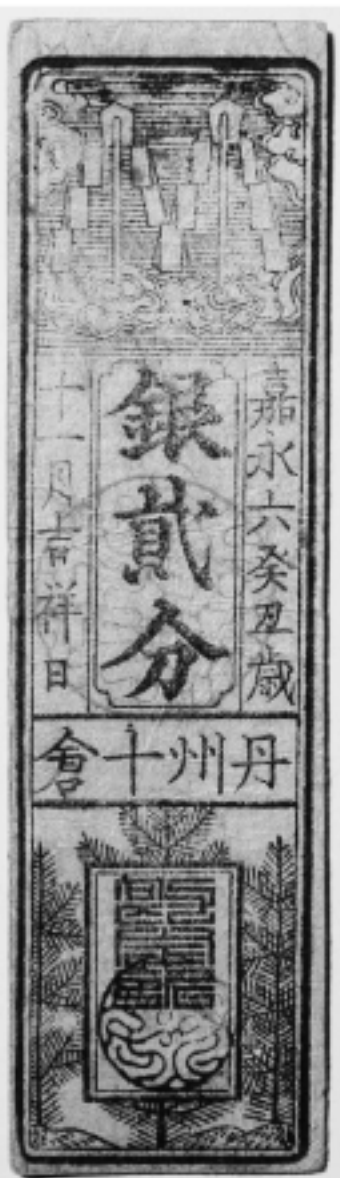 嘉永六癸丑歳
銀貳分
十一月吉祥日
丹州十倉